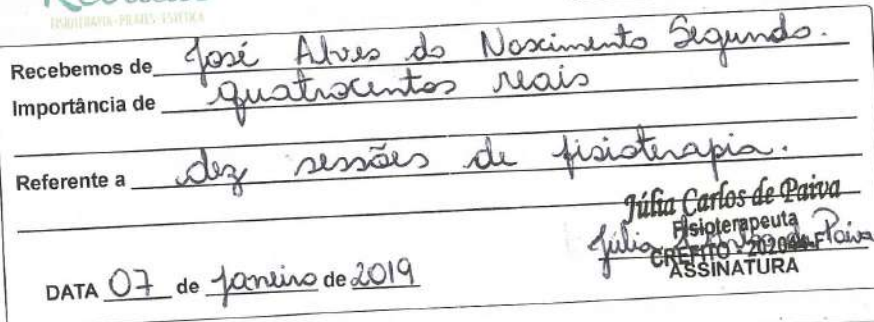 FISIOTERAPIA - PILATES - ESTÉTICA
Recebemos de José Alves do Nascimento Segundo.
Importância de quatrocentos reais
Referente a dez sessões de fisioterapia.
Júlia Carlos de Paiva
Fisioterapeuta
CREFITO - F
ASSINATURA
DATA 07 de janeiro de 2019